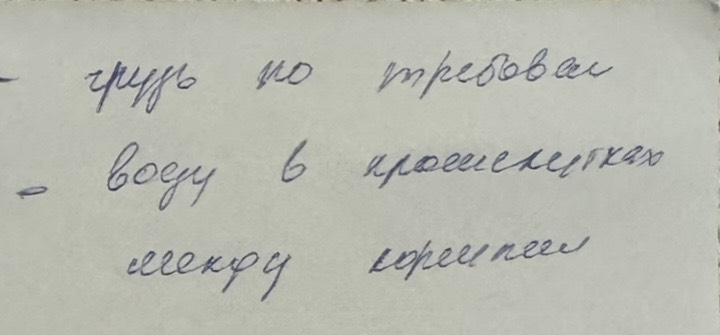 - грудь по требован
- воду в промежутках
между кормлен